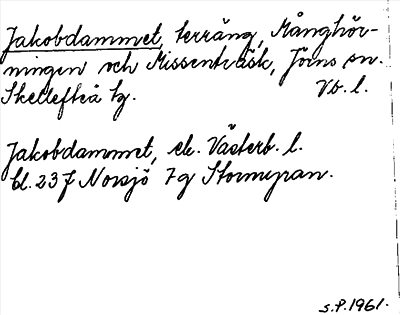 Jakobdammet, terräng, Månghör-
ningen och Missenträsk, Jörns sn.
Skellefteå tg. Vb. l.
Jakobdammet, ek. Västerb. l.
bl. 23 J Norsjö 7 g Stormyran.
S.P. 1961.